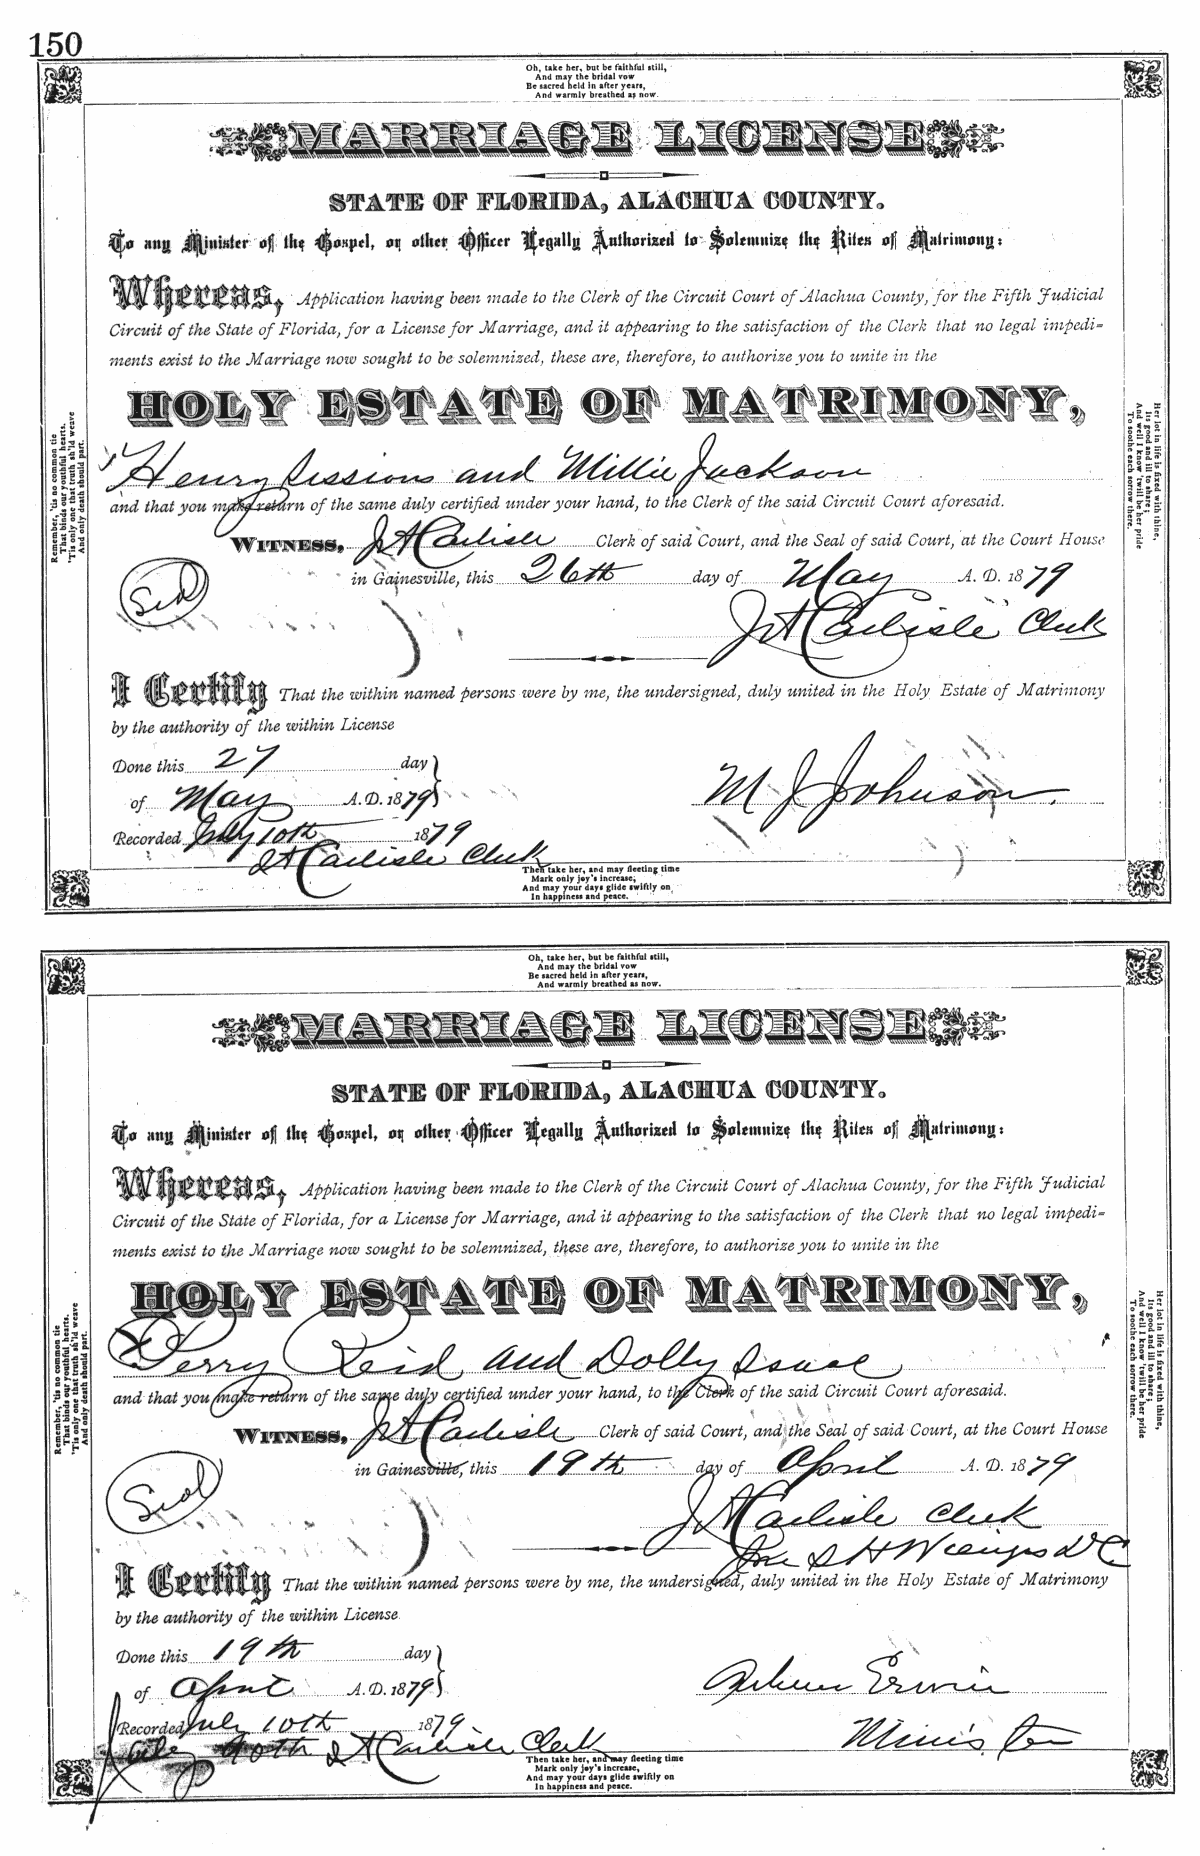 150
Oh, take her, but be faithful still,
And may the bridal vow
Be sacred held in after years,
And warmly breathed as now.
MARRIAGE LICENSE
STATE OF FLORIDA, ALACHUA COUNTY.
To any Minister of the Gospel, or other Officer Legally Authorized to Solemnize the Rites of Matrimony:
Whereas, Application having been made to the Clerk of the Circuit Court of Alachua County, for the Fifth Judicial
Circuit of the State of Florida, for a License for Marriage, and it appearing to the satisfaction of the Clerk that no legal impedi=
ments exist to the Marriage now sought to be solemnized, these are, therefore, to authorize you to unite in the
HOLY ESTATE OF MATRIMONY,
Henry Sessions and Millie Jackson
and that you make return of the same duly certified under your hand, to the Clerk of the said Circuit Court aforesaid.
WITNESS, J A Carlisle Clerk of said Court, and the Seal of said Court, at the Court House
in Gainesville, this 26th day of May A. D. 1879
Seal
J A Carlisle Clerk
I Certify That the within named persons were by me, the undersigned, duly united in the Holy Estate of Matrimony
by the authority of the within License
Done this 27 day
of May A. D. 1879
M J Johnson.
Recorded July 10th 1879
J A Carlisle Clerk
Then take her, and may fleeting time
Mark only joy's increase,
And may your days glide swiftly on
In happiness and peace.
Remember, 'tis no common tie
That binds our youthful hearts.
'Tis only one that truth sh'ld weave
And only death should part.
Her lot in life is fixed with thine,
Its good and ill to share;
And well I know 'twill be her pride
To soothe each sorrow there.
Oh, take her, but be faithful still,
And may the bridal vow
Be sacred held in after years,
And warmly breathed as now.
MARRIAGE LICENSE
STATE OF FLORIDA, ALACHUA COUNTY.
To any Minister of the Gospel, or other Officer Legally Authorized to Solemnize the Rites of Matrimony:
Whereas, Application having been made to the Clerk of the Circuit Court of Alachua County, for the Fifth Judicial
Circuit of the State of Florida, for a License for Marriage, and it appearing to the satisfaction of the Clerk that no legal impedi=
ments exist to the Marriage now sought to be solemnized, these are, therefore, to authorize you to unite in the
HOLY ESTATE OF MATRIMONY,
Perry Reid and Dolly Isaac
and that you make return of the same duly certified under your hand, to the Clerk of the said Circuit Court aforesaid.
WITNESS, J A Carlisle Clerk of said Court, and the Seal of said Court, at the Court House
in Gainesville, this 19th day of April A. D. 1879
Seal
J A Carlisle Clerk
S H Wienges D C
I Certify That the within named persons were by me, the undersigned, duly united in the Holy Estate of Matrimony
by the authority of the within License
Done this 19th day
of April A. D. 1879
Erwin
Recorded July 10th 1879
Minister
J A Carlisle Clerk
Then take her, and may fleeting time
Mark only joy's increase,
And may your days glide swiftly on
In happiness and peace.
Remember, 'tis no common tie
That binds our youthful hearts.
'Tis only one that truth sh'ld weave
And only death should part.
Her lot in life is fixed with thine,
Its good and ill to share;
And well I know 'twill be her pride
To soothe each sorrow there.